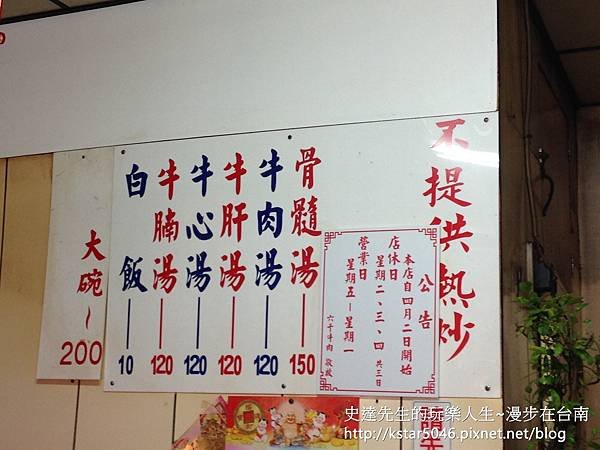 不提供熱炒
公告
本店自四月二日開始
店休日
星期二、三、四 共三日
營業日
星期五－星期一
六千牛肉 敬啟
骨髓湯 150
牛肉湯 120
牛肝湯 120
牛心湯 120
牛腩湯 120
白飯 10
大碗～200
史達先生的玩樂人生~漫步在台南
http://kstar5046.pixnet.net/blog